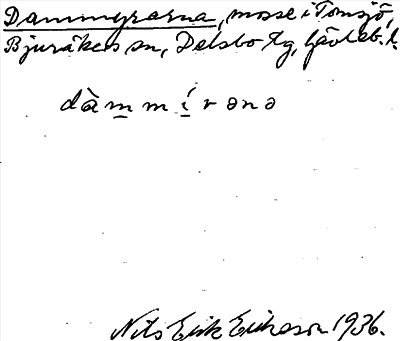 Dammyrarna, mosse i Tomsjö,
Bjuråkers sn, Delsbo tg, Gävleb. l.
dàm̲mí̲rənə
Nils Erik Erikson 1936.